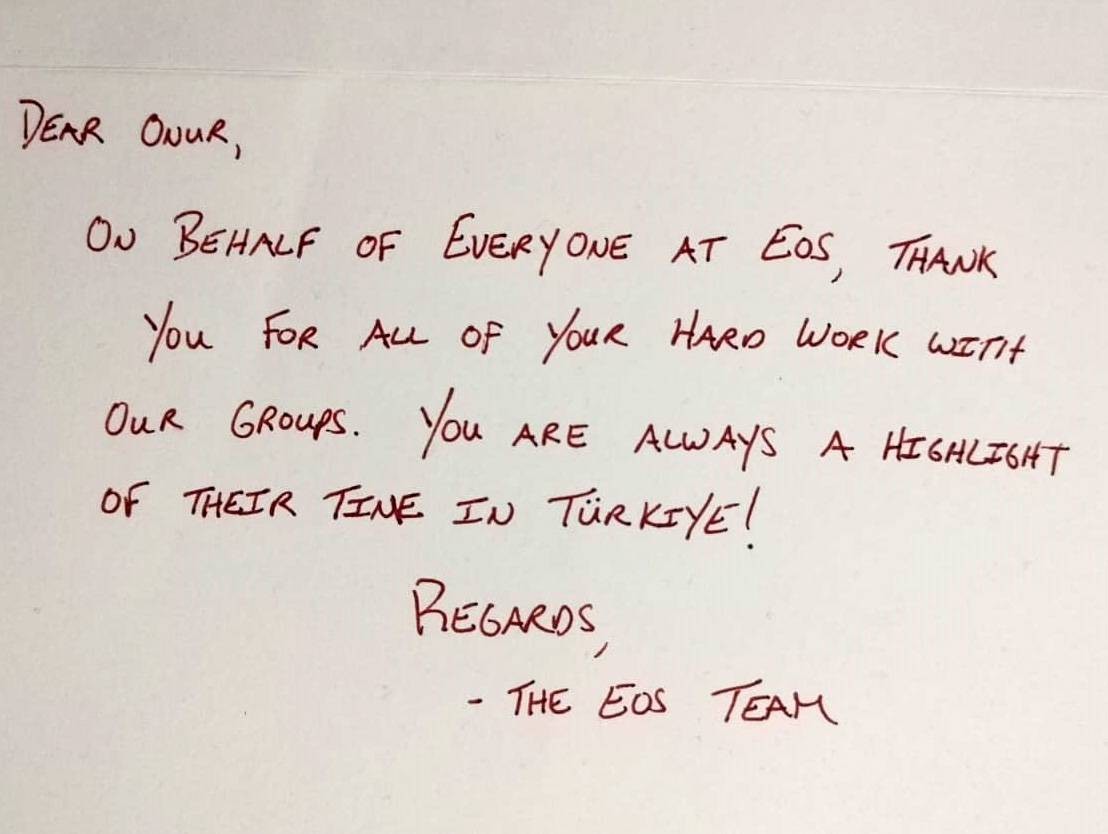 DEAR ONUR,
ON BEHALF OF EVERYONE AT EOS, THANK
YOU FOR ALL OF YOUR HARD WORK WITH
OUR GROUPS. YOU ARE ALWAYS A HIGHLIGHT
OF THEIR TIME IN TÜRKIYE!
REGARDS,
- THE EOS TEAM